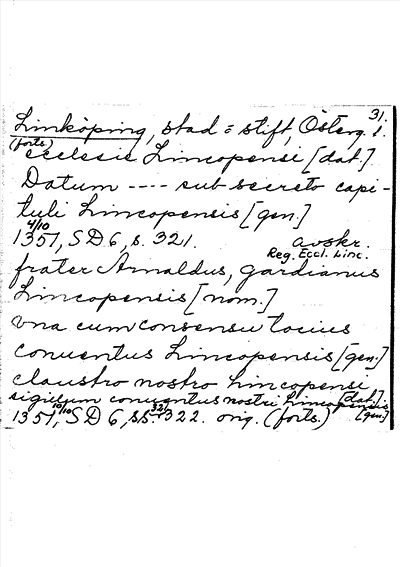 31.
Linköping, stad = stift, Österg. l.
(forts)
ecclesie Lincopensi [dat.]
Datum ---- sub secreto capi-
tuli Lincopensis [gen.]
4/10
1351, SD 6, s. 321. avskr.
Reg. Eccl. Linc.
frater Arnaldus, gardianus
Lincopensis [nom.]
vna cum consensu tocius
conuentus Lincopensis [gen.]
claustro nostro Lincopensi [dat.]
sigillum conuentus nostri Lincopensis [gen.]
10/10
1351, SD 6, ss. 321-322. orig. (forts.)